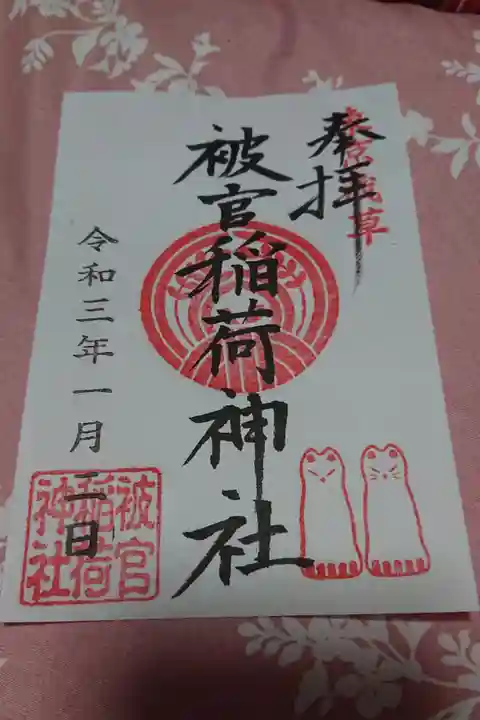 奉拝
東京浅草
被官稲荷神社
令和三年一月二日
被官
稲荷
神社